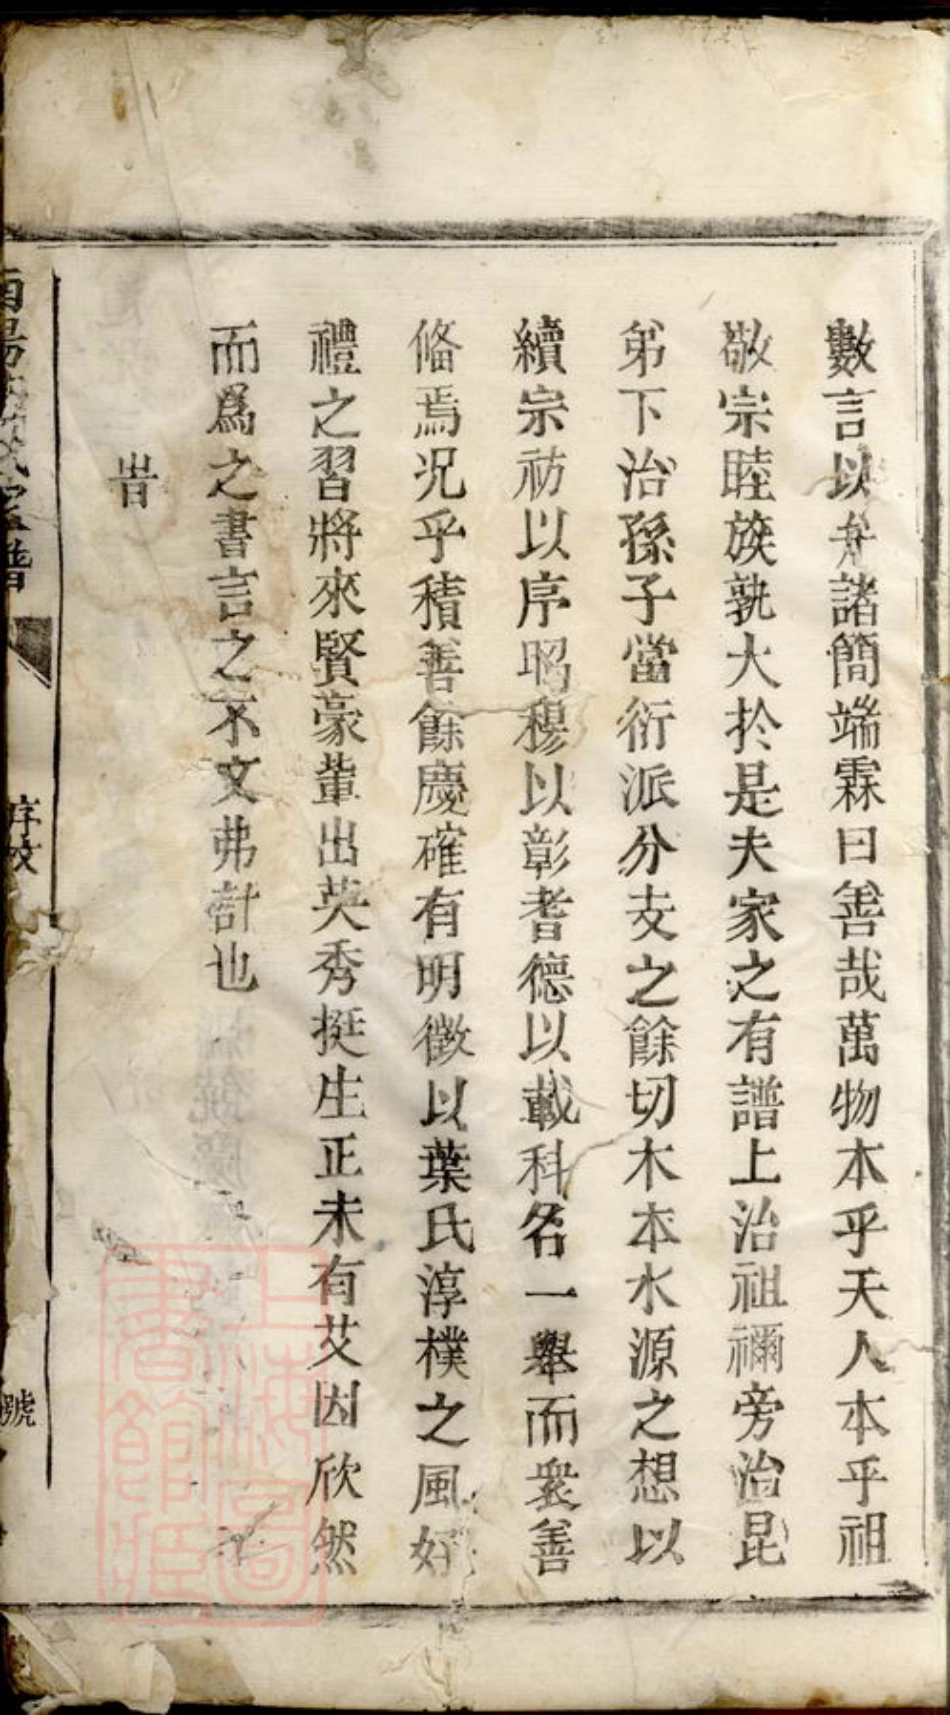 數言以弁諸簡端霖曰善哉萬物本乎天人本乎祖
敬宗睦族孰大於是夫家之有譜上治祖禰旁治昆
弟下治孫子當衍派分支之餘切木本水源之想以
續宗祊以序昭穆以彰耆德以載科名一舉而衆善
脩焉况乎積善餘慶確有明徵以葉氏淳樸之風好
禮之習將來賢豪輩出英秀挺生正未有艾因欣然
而爲之書言之不文弗計也
旹
氏家譜
序文
號
上海圖書館藏